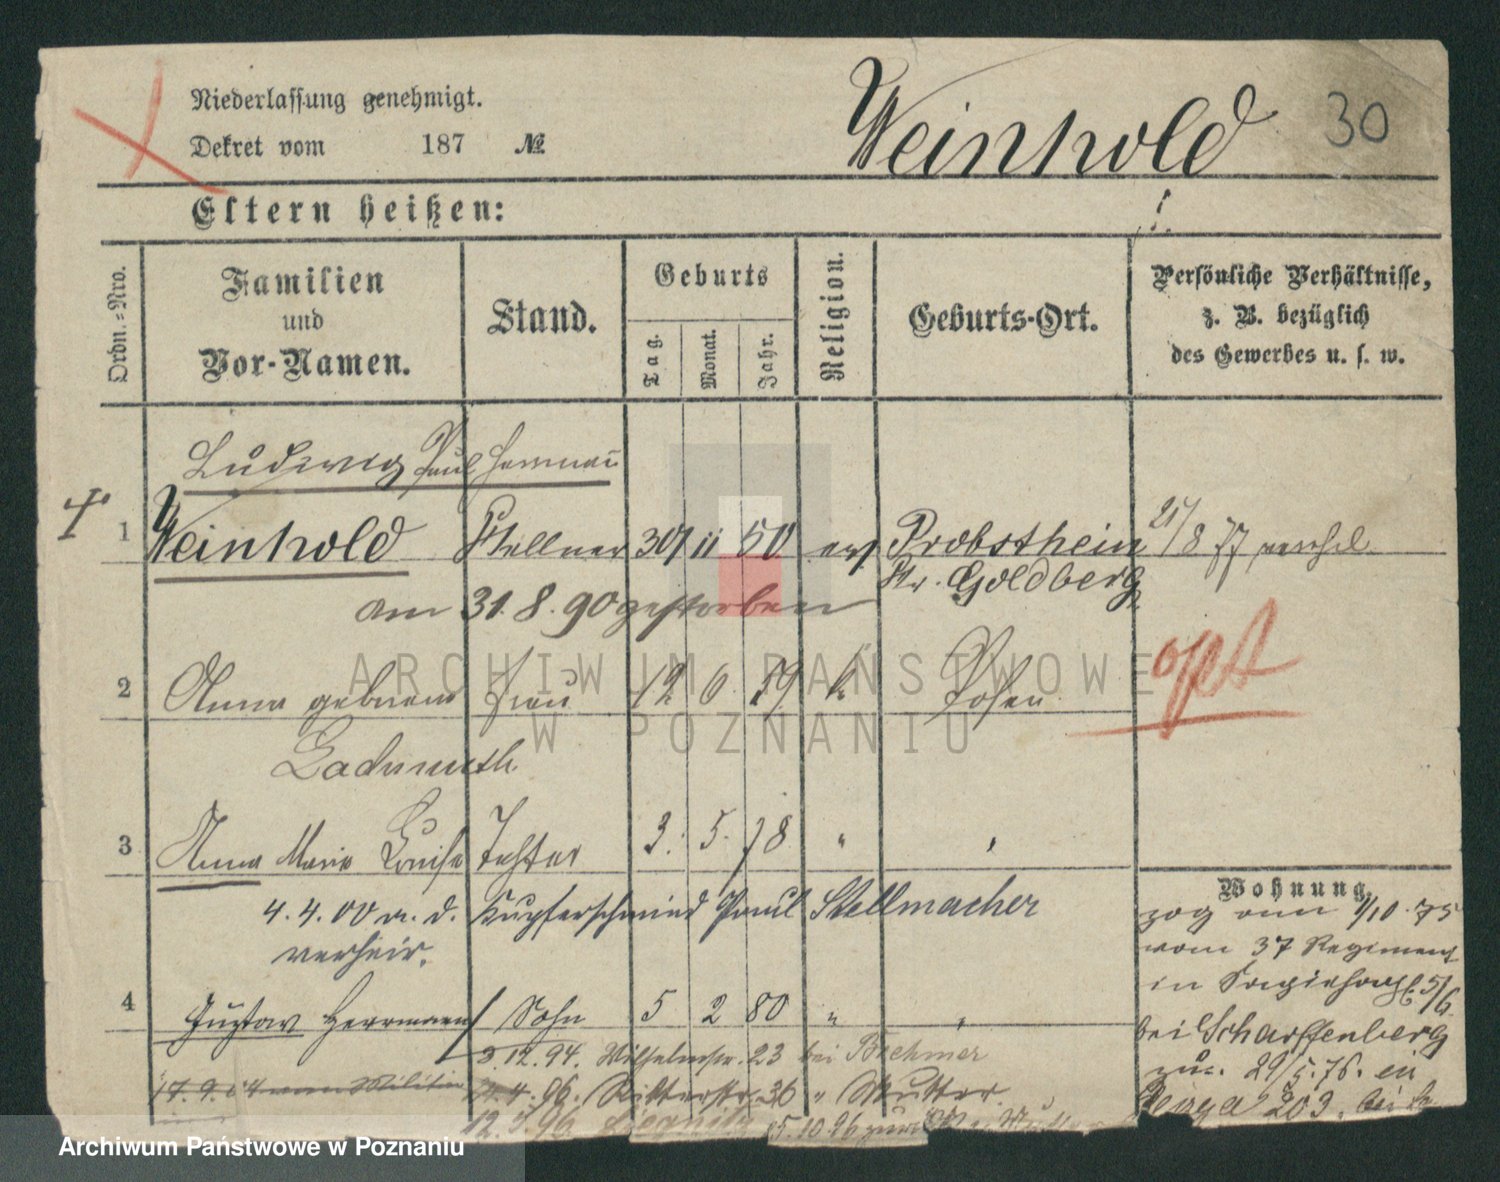 Niederlassung genehmigt.
Dekret vom 187 №
Weinhold 30
Eltern heißen:
Ordn.=Nro.
Familien
und
Vor-Namen.
Stand.
Geburts
Tag.
Monat.
Jahr.
Religion.
Geburts-Ort.
Persönliche Verhältnisse,
z. B. bezüglich
des Gewerbes u. s. w.
Ludwig Paul Hermann
1 Weinhold Kellner 30 11 50 ev Probsthein 21/8 77
Kr. Goldberg
am 31.8.90 gestorben
2 Anna geborene Frau 12 6 59 k Posen
opt
3 Anna Marie Louise Tochter 3. 5. 78 " "
4.4.00 m. d. Kupferschmied Paul Stellmacher
verheir.
4 Gustav Herrmann Sohn 5 2 80 " "
3.12.94. Wilhelmstr. 23 bei Boehmer
17.9.04 vom Militär
4.4.96. Ritterstr. 36 " Mutter.
12. 96 Liegnitz 5.10.96 zurück
Wohnung.
zog am 1/10.75
vom 37 Regiment
in
bei Scharffenberg
29/5.76. in
203. bei
ARCHIWUM PAŃSTWOWE
W POZNANIU
Archiwum Państwowe w Poznaniu